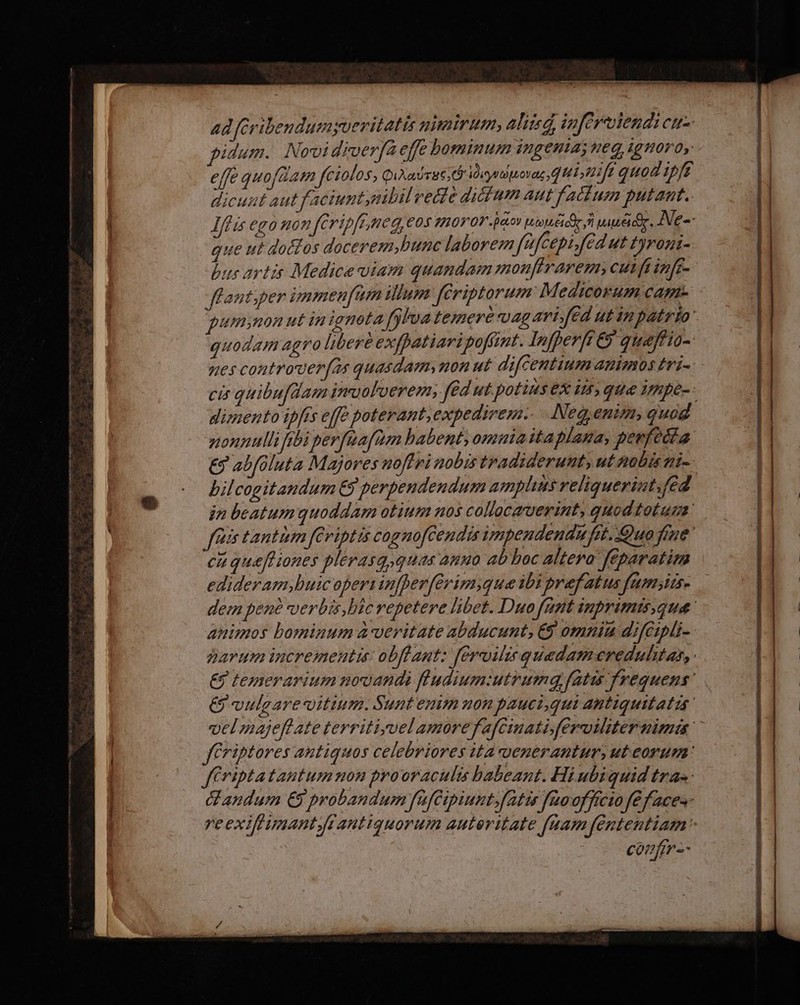 ad ſcribendum, veritatis nimirum, aliisq́, inſerviendi cu-
pidum. Novi diverſa eſſe hominum ingenia; neq, ignoro,
eſſe quoſdam ſciolos, φιλαύτες, & ἰδιογνώμονας, qui, niſi quod ipſi
dicunt aut faciunt, nihil recte dictum aut factum putant.
Iſtis ego non ſcripſi, neq, eos moror ῥᾷον μωμεῖσθαι ἢ μιμεῖσθαι. Ne-
que ut doctos docerem, hunc laborem ſuſcepi, ſed ut tyroni-
bus artis Medicæ viam quandam monſtrarem, cui ſi inſi-
ſtant, per immenſum illum ſcriptorum Medicorum cam-
pum, non ut in ignota ſylva temerè vagari, ſed ut in patrio
quodam agro liberè exſpatiari poſſint. Inſperſi & quæſtio-
nes controverſas quasdam, non ut diſcentium animos tri-
cis quibuſdam involverem, ſed ut potius ex iis, quæ impe-
dimento ipſis eſſe poterant, expedirem. Neq, enim, quod
nonnulli ſibi perſuaſum habent, omnia ita plana, perfecta
& abſoluta Majores noſtri nobis tradiderunt, ut nobis ni-
hil cogitandum & perpendendum amplius reliquerint, ſed
in beatum quoddam otium nos collocaverint, quod totum
ſuis tantùm ſcriptis cognoſcendis impendendū ſit. Quo fine
cū quæſtiones plerasq, quas anno ab hoc altero ſeparatim
edideram, huic operi inſperſerim, quæ ibi præfatus ſum, iis-
dem penè verbis, hîc repetere libet. Duo ſunt inprimis, quæ
animos hominum à veritate abducunt, & omniū diſcipli-
narum incrementis obſtant: ſervilis quædam credulitas,
& temerarium novandi ſtudium: utrumq, ſatis frequens
& vulgare vitium. Sunt enim non pauci, qui antiquitatis
vel majeſtate territi, vel amore faſcinati, ſerviliter nimis
ſcriptores antiquos celebriores ita venerantur, ut eorum
ſcripta tantum non pro oraculis habeant. Hi ubi quid tra-
ctandum & probandum ſuſcipiunt, ſatis ſuo officio ſe face-
re exiſtimant, ſi antiquorum autoritate ſuam ſententiam
confir-